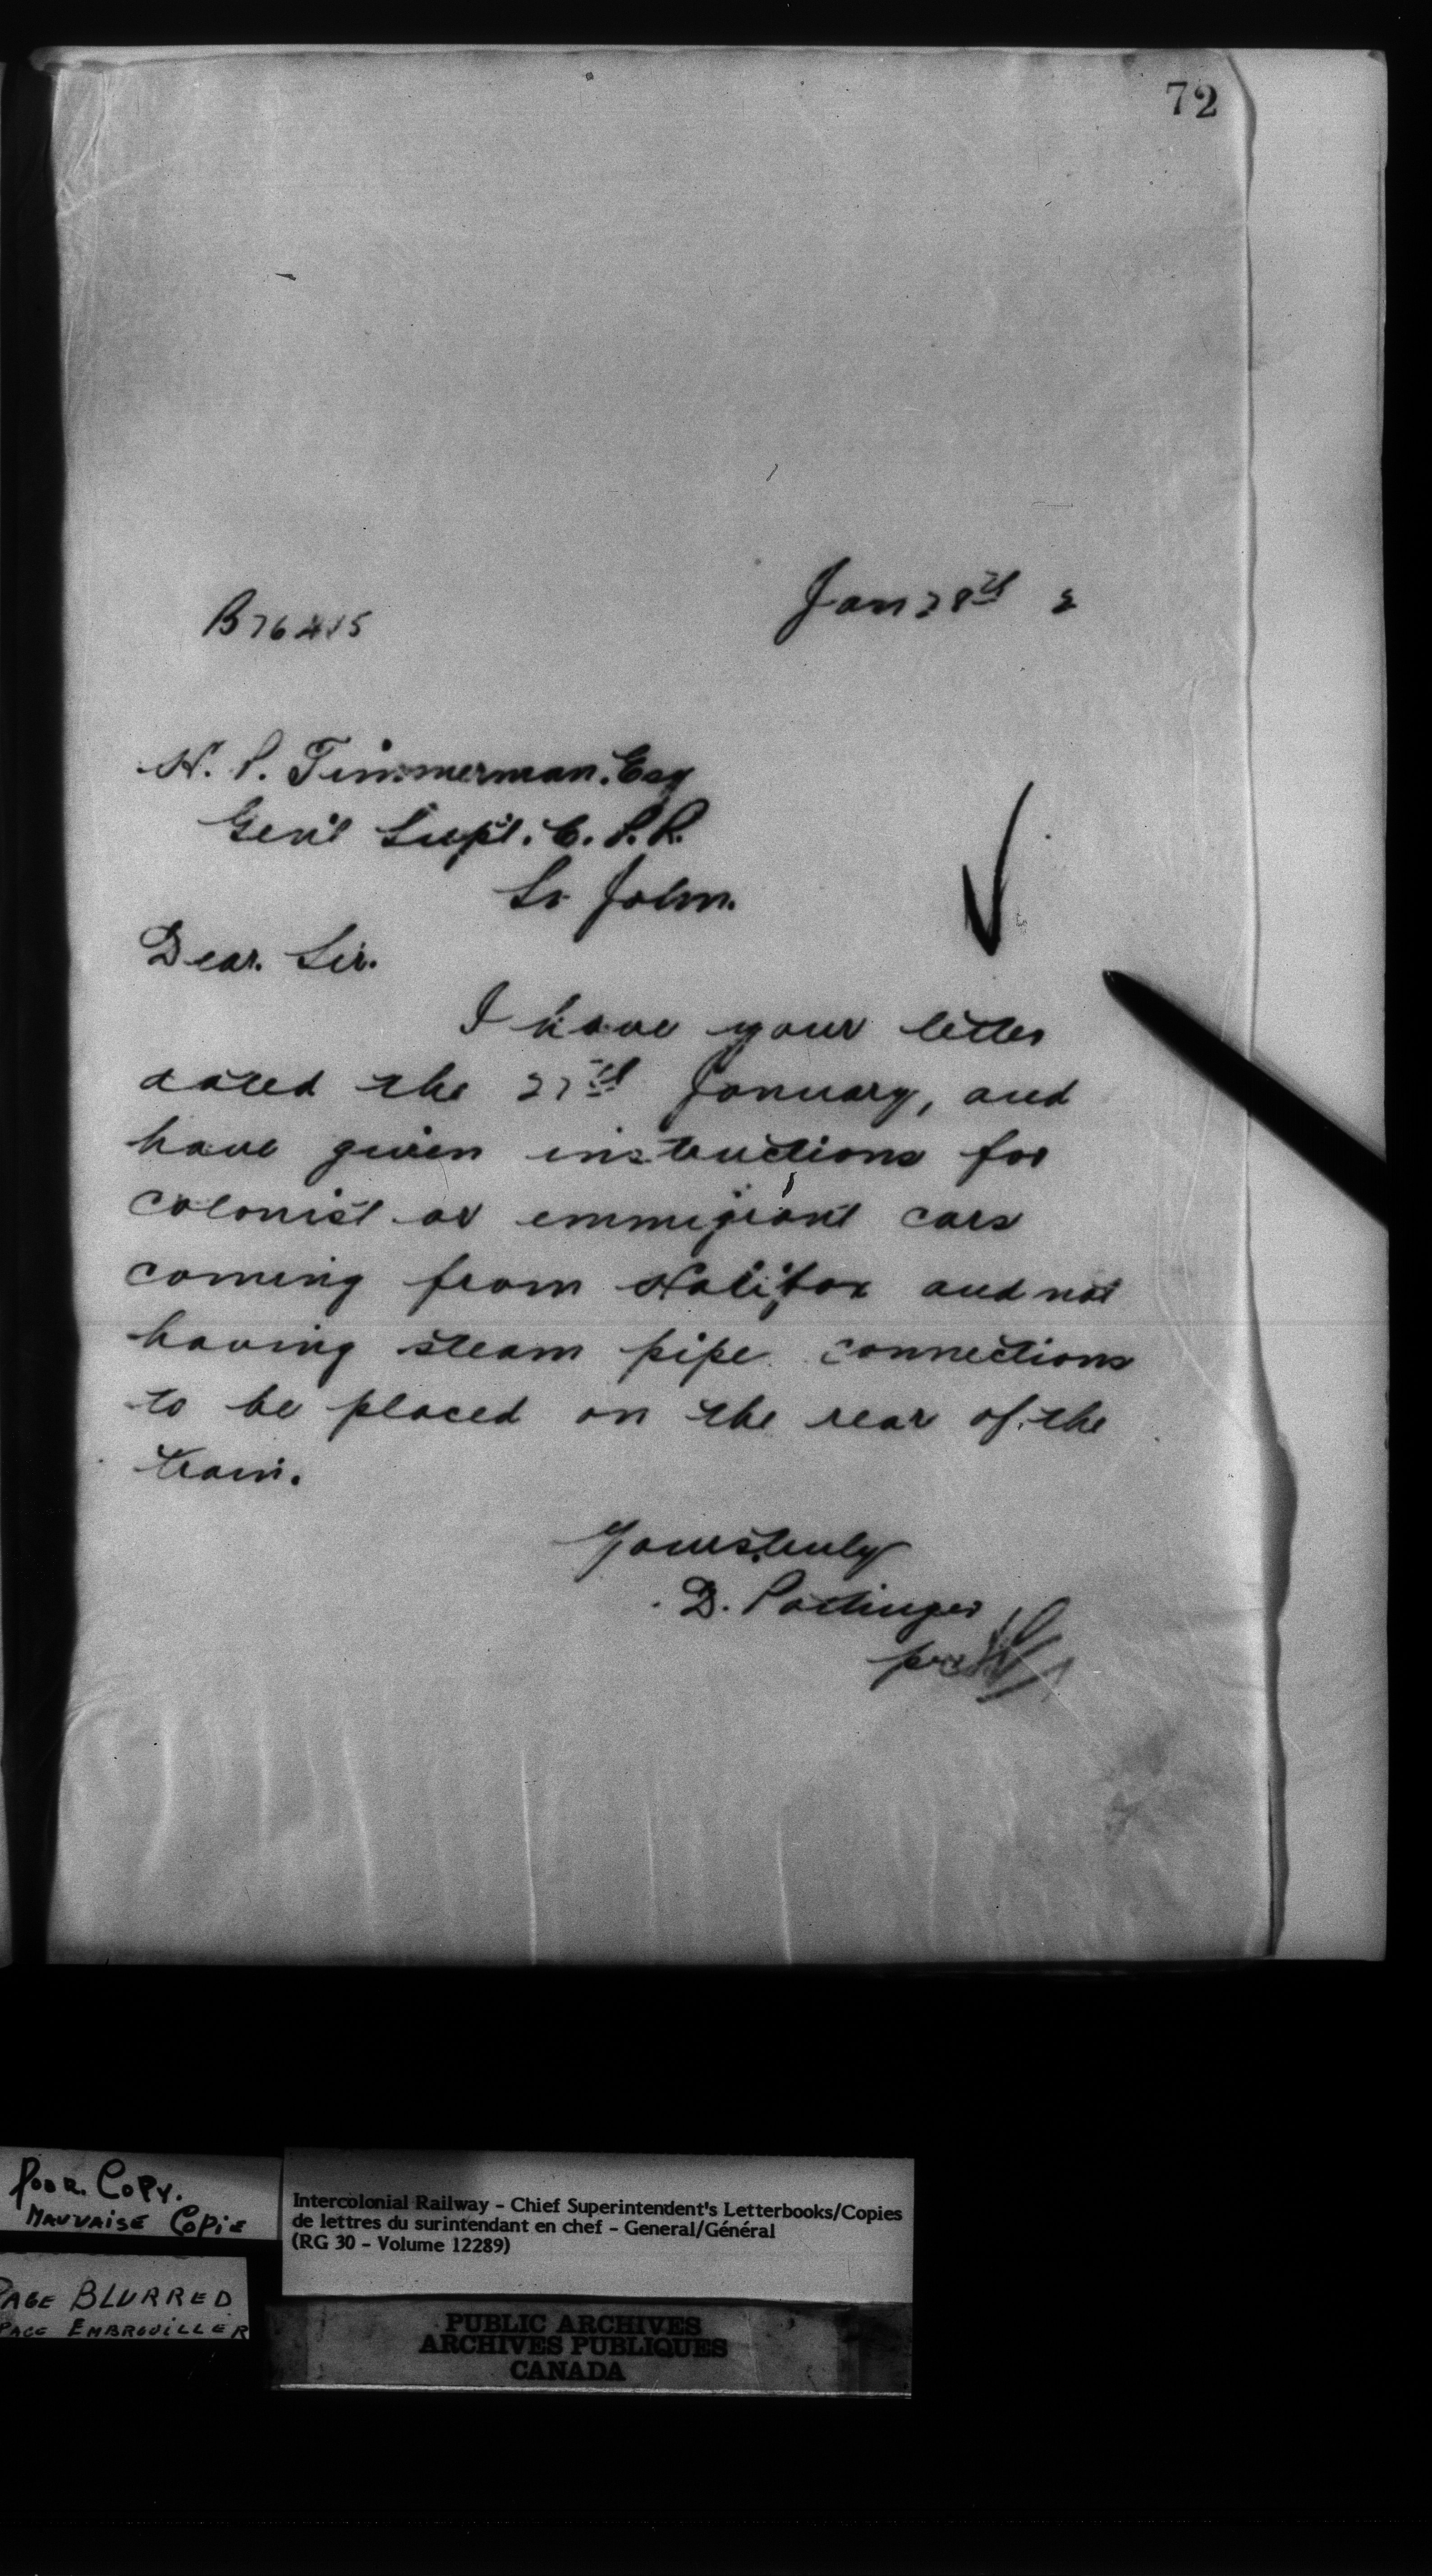 72
B76415 Jan 28th 2
H. P. Timmerman. Esq
Gen'l Supt. C. P. R.
St John.
Dear. Sir.
I have your letter
dated the 27th January, and
have given instructions for
colonist or emmigrant cars
coming from Halifax and not
having steam pipe connections
to be placed on the rear of the
train.
Yours truly
D. Pottinger
per
POOR. COPY.
MAUVAISE COPIE
PAGE BLURRED
PAGE EMBROUILLER
Intercolonial Railway - Chief Superintendent's Letterbooks/Copies
de lettres du surintendant en chef - General/Général
(RG 30 - Volume 12289)
PUBLIC ARCHIVES
ARCHIVES PUBLIQUES
CANADA